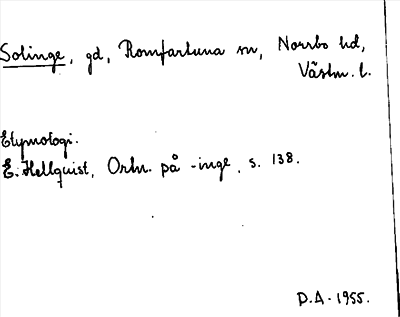 Solinge, gd, Romfartuna sn, Norrbo hd,
Västm. l.
Etymologi.
E. Hellquist, Ortn. på -inge, s. 138.
D.A. 1955.